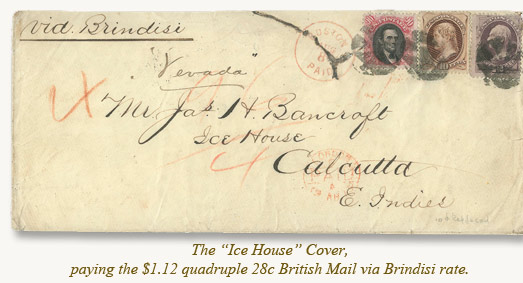 via. Brindisi
BOSTON
PAID
"Nevada"
4
Mr. Jas. H. Bancroft
Ice House
Calcutta
E. Indies
The “Ice House” Cover,
paying the $1.12 quadruple 28c British Mail via Brindisi rate.